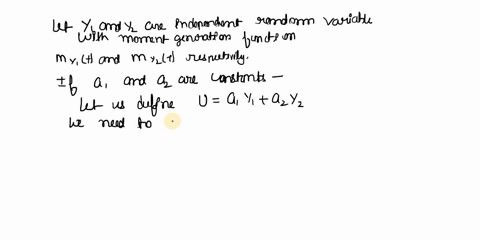 let Y₁ and Y₂ are Independent random variable
with moment generation function
m_Y₁(t) and m_Y₂(t) respectivly.
If a₁ and a₂ are constants –
Let us define U = a₁Y₁ + a₂Y₂
We need to